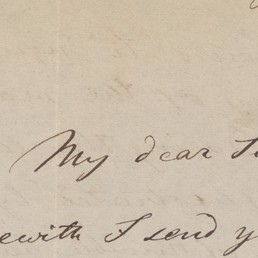 My dear
ewith I send y